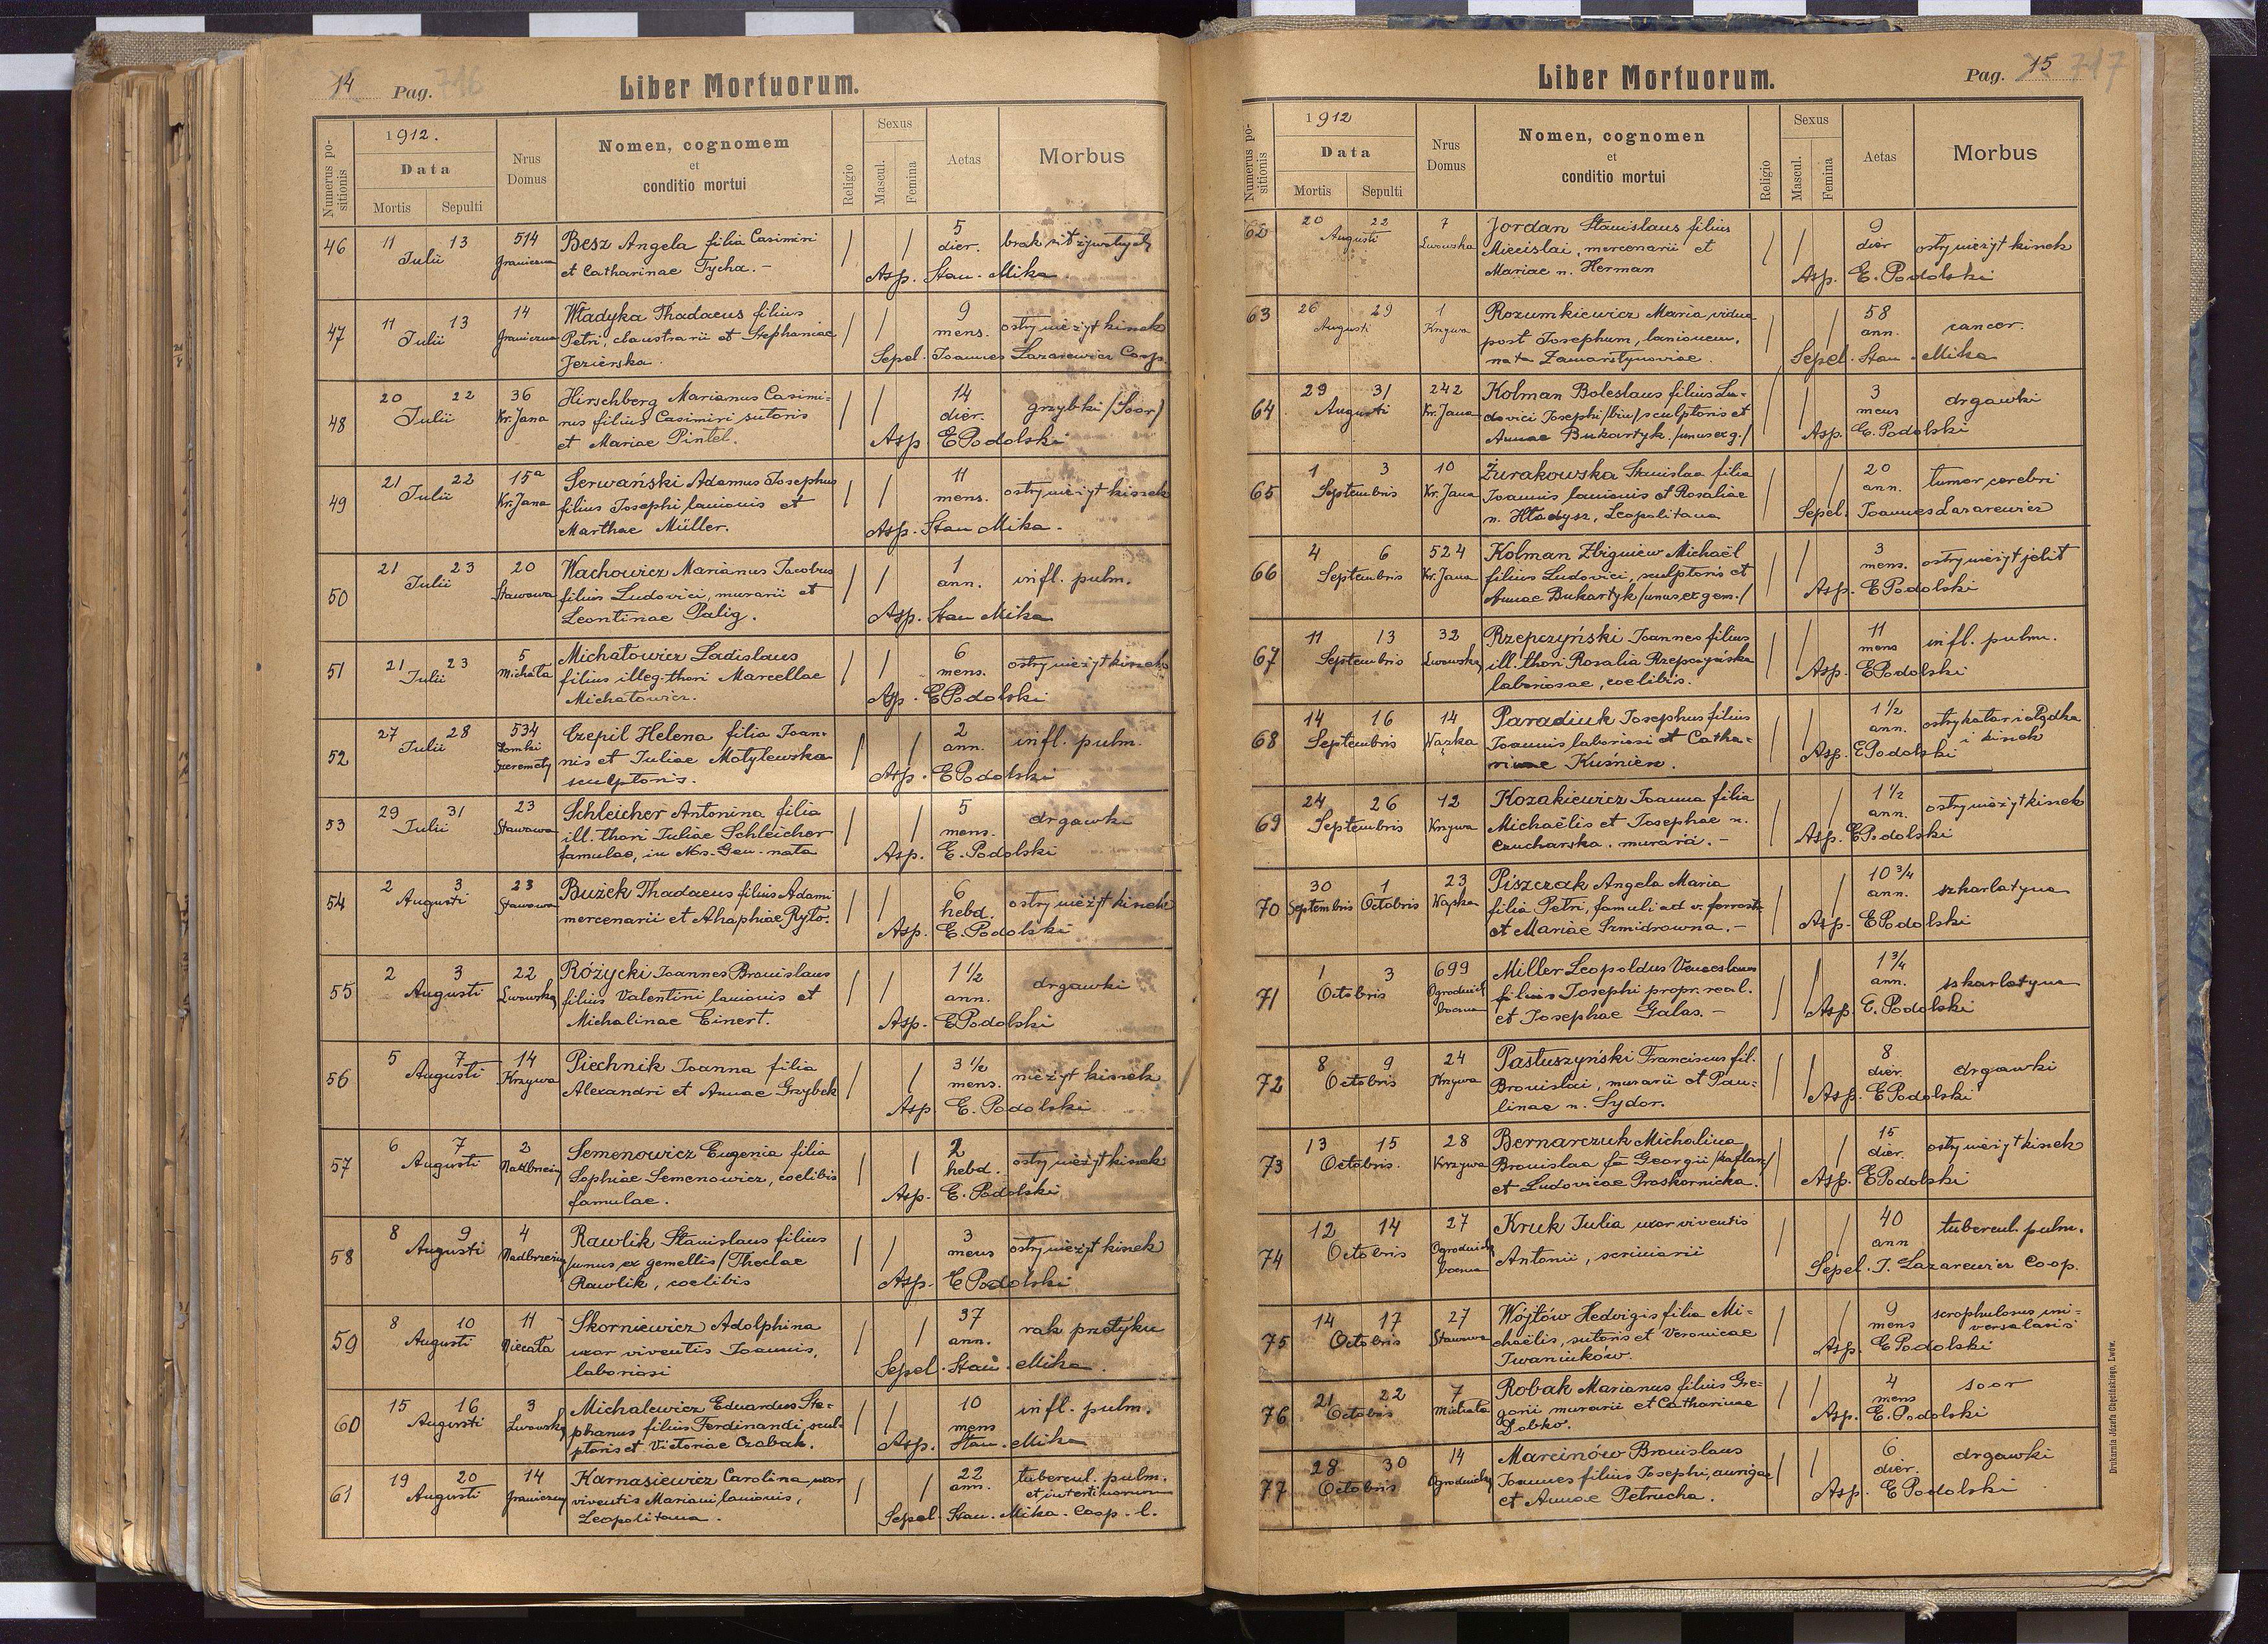 14 Pag. 716
Liber Mortuorum.
Numerus positionis
1912.
Data
Mortis Sepulti
Nrus Domus
Nomen, cognomem
et
conditio mortui
Religio
Sexus
Mascul. Femina
Aetas
Morbus
46 11 13 Julii 514 Graniczna
Besz Angela filia Casimiri
et Catharinae Tycha. -
5 dier. brak sił żywotnych
Asp. Stan. Mika
47 11 13 Julii 14 Graniczna
Władyka Thadaeus filius
Petri, claustrarii et Stephaniae
Jezierska.
9 mens. ostry nieżyt kiszek
Sepel. Joannes Lazarewicz Coop.
48 20 22 Julii 36 Kr. Jana
Hirschberg Marianus Casimi-
rus filius Casimiri sutoris
et Mariae Pintel.
14 dier. grzybki /Soor/
Asp. E Podolski
49 21 22 Julii 15a Kr. Jana
Serwański Adamus Josephus
filius Josephi lanionis et
Marthae Müller.
11 mens. ostry nieżyt kiszek
Asp. Stan Mika.
50 21 23 Julii 20 Stawowa
Wachowicz Marianus Jacobus
filius Ludovici, murarii et
Leontinae Palig.
1 ann. infl. pulm.
Asp. Stan Mika
51 21 23 Julii 5 Michała
Michałowicz Ladislaus
filius illeg. thori Marcellae
Michałowicz.
6 mens. ostry nieżyt kiszek
Asp. E Podolski
52 27 28 Julii 534
Czepil Helena filia Joan-
nis et Juliae Motylewska
sculptoris.
2 ann. infl. pulm.
Asp. E Podolski
53 29 31 Julii 23 Stawowa
Schleicher Antonina filia
ill. thori Juliae Schleicher
famulae, in Nos. Gen. nata
5 mens. drgawki
Asp. E. Podolski
54 2 3 Augusti 23 Stawowa
Bużek Thadaeus filius Adami
mercenarii et Ahaphiae Ryło.
6 hebd. ostry nieżyt kiszek
Asp. E. Podolski
55 2 3 Augusti 22 Lwowska
Różycki Joannes Bronislaus
filius Valentini lanionis et
Michalinae Einert.
1 1/2 ann. drgawki
Asp. E Podolski
56 5 7 Augusti 14 Krzywa
Piechnik Joanna filia
Alexandri et Annae Grzybek
3 1/2 mens. nieżyt kiszek
Asp E. Podolski
57 6 7 Augusti 2
Semenowicz Eugenia filia
Sophiae Semenowicz, coelibis
famulae.
2 hebd. ostry nieżyt kiszek
Asp. E. Podolski
58 8 9 Augusti 4
Rawlik Stanislaus filius
/unus ex gemellis/ Theclae
Rawlik, coelibis
3 mens ostry nieżyt kiszek
Asp. E Podolski
59 8 10 Augusti 11
Skorniewicz Adolphina
uxor viventis Joannis,
laboriosi
37 ann. rak przełyku
Sepel. Stan. Mika.
60 15 16 Augusti 3 Lwowska
Michalewicz Eduardus Ste-
phanus filius Ferdinandi, scul-
ptoris et Victoriae Czabak.
10 mens infl. pulm.
Asp. Stan. Mika
61 19 20 Augusti 14 Graniczna
Karnasiewicz Carolina uxor
viventis Mariani lanionis,
Leopolitana.
22 ann. tubercul. pulm.
et intestinorum
Sepel. Stan. Mika. Coop. l.
Liber Mortuorum.
Pag. 15 717
Numerus positionis
1912
Data
Mortis Sepulti
Nrus Domus
Nomen, cognomen
et
conditio mortui
Religio
Sexus
Mascul. Femina
Aetas
Morbus
62 20 22 Augusti 7 Lwowska
Jordan Stanislaus filius
Miecislai, mercenarii et
Mariae n. Herman
9 dier ostry nieżyt kiszek
Asp. E. Podolski
63 26 29 Augusti 1 Krzywa
Rozumkiewicz Maria vidua
post Josephum, lanionem,
nata Zamarstynoviae.
58 ann. cancer.
Sepel. Stan. Mika
64 29 31 Augusti 242 Kr. Jana
Kolman Boleslaus filius Lu-
dovici Josephi /bin/ sculptoris et
Annae Bukartyk. /unus ex g./
3 mens drgawki
Asp. E. Podolski
65 1 3 Septembris 10 Kr. Jana
Żurakowska Stanislaa filia
Joannis lanionis et Rosaliae
n. Hładysz, Leopolitana
20 ann. tumor cerebri
Sepel. Joannes Lazarewicz
66 4 6 Septembris 524 Kr. Jana
Kolman Zbigniew Michaël
filius Ludovici, sculptoris et
Annae Bukartyk /unus ex gem./
3 mens. ostry nieżyt jelit
Asp. E Podolski
67 11 13 Septembris 32 Lwowska
Rzepczyński Joannes filius
ill. thori Rosalia Rzepczyńska
laboriosae, coelibis.
11 mens infl. pulm.
Asp. E Podolski
68 14 16 Septembris 14 Wązka
Paradiuk Josephus filius
Joannis laboriosi et Catha-
rinae Kuśnierz.
1 1/2 ann. ostry katar żołądka
i kiszek
Asp. E Podolski
69 24 26 Septembris 12 Krzywa
Kozakiewicz Joanna filia
Michaëlis et Josephae n.
Czucharska, murarii. -
1 1/2 ann. ostry nieżyt kiszek
Asp. E Podolski
70 30 Septembris 1 Octobris 23 Wązka
Piszczak Angela Maria
filia Petri, famuli ad v. ferrat.
et Mariae Szmidrowna. -
10 3/4 ann. szkarlatyna
Asp. E Podolski
71 1 3 Octobris 699
Miller Leopoldus Venceslaus
filius Josephi propr. real.
et Josephae Galas. -
1 3/4 ann. szkarlatyna
Asp. E. Podolski
72 8 9 Octobris 24 Krzywa
Pastuszyński Franciscus fil.
Bronislai, murarii et Pau-
linae n. Sydor.
8 dier. drgawki
Asp. E Podolski
73 13 15 Octobris. 28 Krzywa
Bernarczuk Michalina
Bronislaa fa Georgii /kaflarz/
et Ludovicae Proskornicka.
15 dier. ostry nieżyt kiszek
Asp. E Podolski
74 12 14 Octobris 27
Kruk Julia uxor viventis
Antonii, scriniarii
40 ann tubercul. pulm.
Sepel. J. Lazarewicz Coop.
75 14 17 Octobris 27 Stawowa
Wójtów Hedvigis filia Mi-
chaëlis, sutoris et Veronicae
Iwaniuków.
9 mens scrophulosus uni-
versalaris
Asp. E Podolski
76 21 22 Octobris 7 Michała
Robak Marianus filius Gre-
gorii murarii et Catharinae
Dobko.
4 mens soor
Asp. E. Podolski
77 28 30 Octobris 14
Marcinów Bronislaus
Joannes filius Josephi, aurigae
et Annae Petrucha.
6 dier. drgawki
Asp. E Podolski
Drukarnia Józefa Chęcińskiego, Lwów.